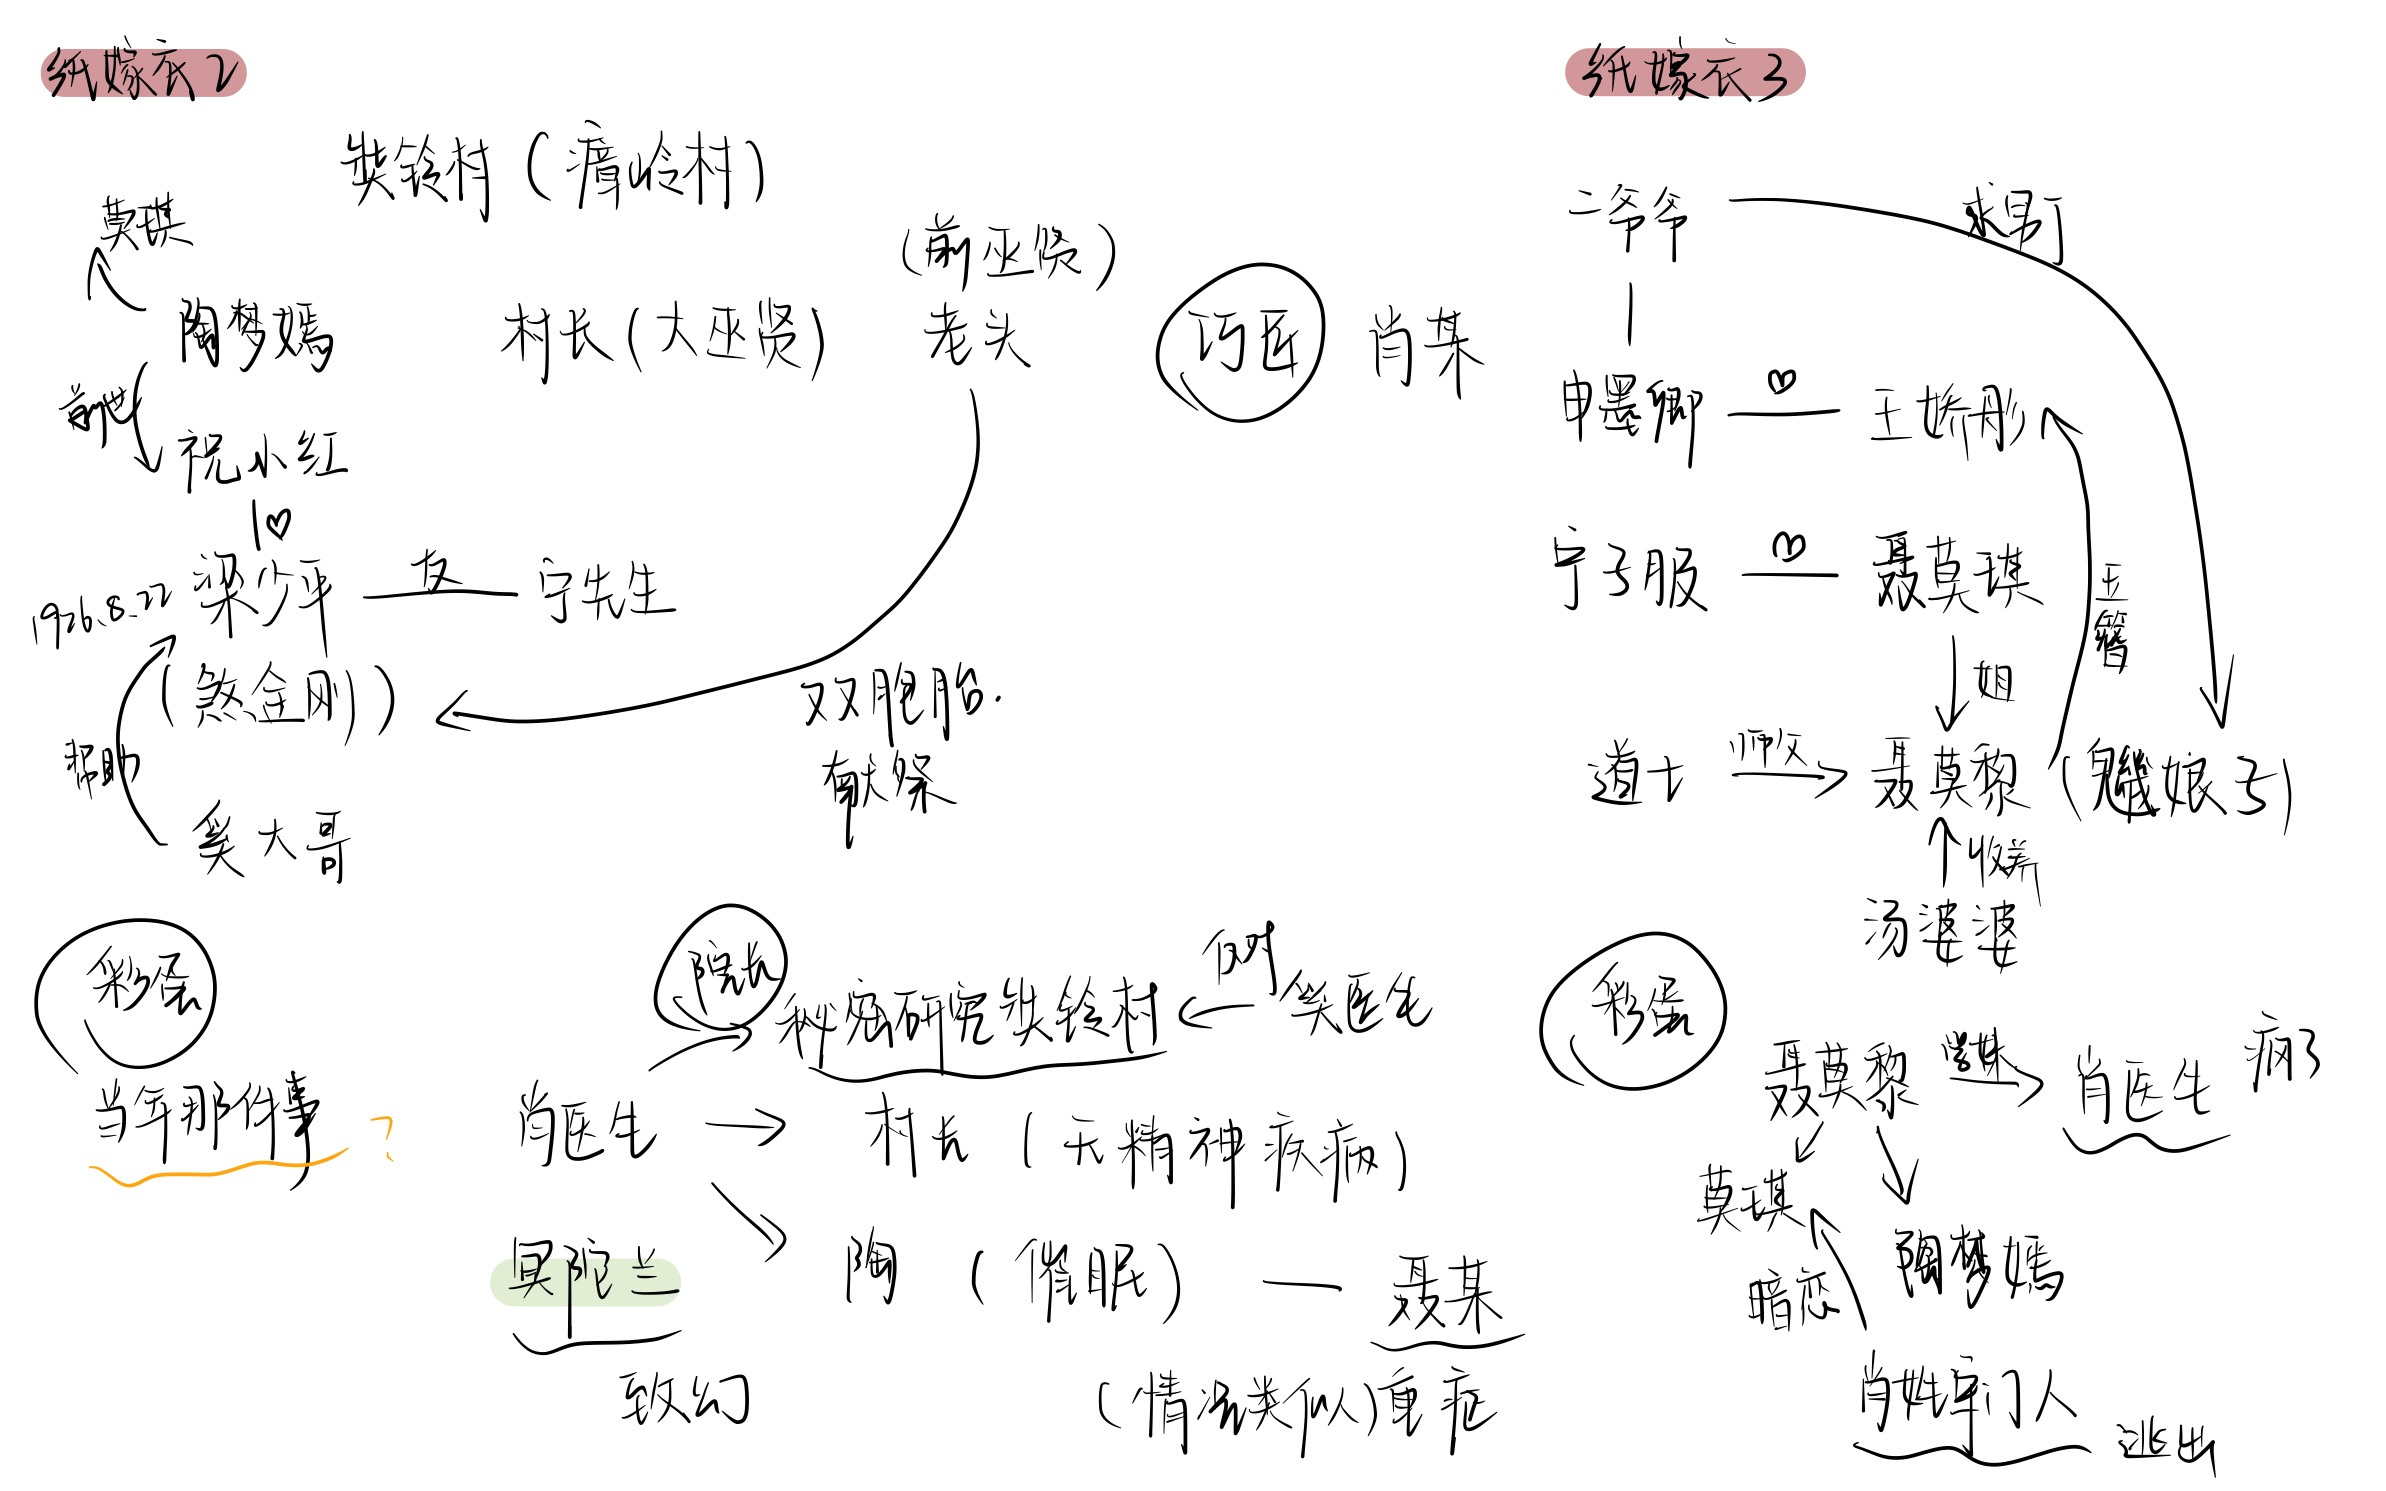 纸嫁衣2
奘铃村（瘴岭村）
莫琪
（前巫贤）
陶梦嫣
村长（大巫贤）
老头
巧匠
肖某
前世
祝小红
♡
1926.8.22
梁少平
友
宁先生
（煞金刚）
双胞胎.
献祭
帮助
奚大哥
彩蛋
当年那件事
?
院长
秘密研究奘铃村
反对
奚医生
肖医生
村长（无精神疾病）
陶（催眠）
聂某
冥陀兰
致幻
（情况类似）重症
纸嫁衣3
二爷爷
求男丁
申墨卿
♡
王娇彤
宁子服
♡
聂莫琪
玉簪
姐
道士
师父
聂莫黎
（魕娘子）
收养
汤婆婆
彩蛋
聂莫黎
肖医生
疯了
莫琪
陶梦嫣
暗恋
肖姓守门人
逃出